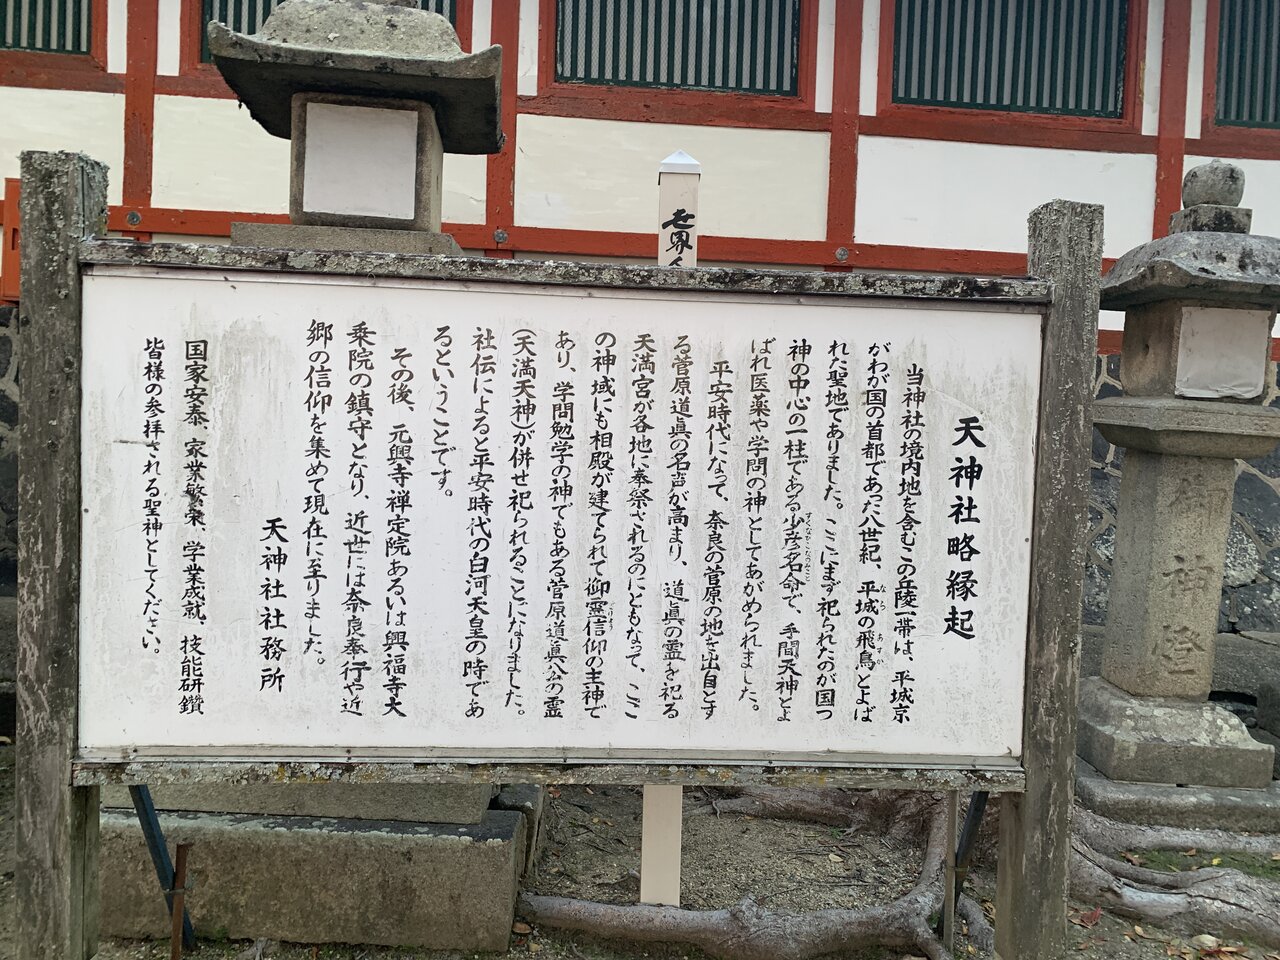 天神社略縁起
当神社の境内地を含むこの丘陵一帯は、平城京
がわが国の首都であった八世紀、平城の飛鳥とよば
なら
あすか
れた聖地でありました。ここにまず祀られたのが国つ
神の中心の一柱である少彦名命で、手間天神とよ
すくなひこなのみこと
ばれ医薬や学問の神としてあがめられました。
平安時代になって、奈良の菅原の地を出自とす
る菅原道眞の名声が高まり、道眞の霊を祀る
天満宮が各地に奉祭されるのにともなって、ここ
の神域にも相殿が建てられて御霊信仰の主神で
ごりょう
あり、学問勉学の神でもある菅原道眞公の霊
(天満天神)が併せ祀られることになりました。
社伝によると平安時代の白河天皇の時であ
るということです。
その後、元興寺禅定院あるいは興福寺大
乗院の鎮守となり、近世には奈良奉行や近
郷の信仰を集めて現在に至りました。
天神社社務所
国家安泰、家業繁栄、学業成就、技能研鑽
皆様の参拝される聖神としてください。
世界人
御神燈